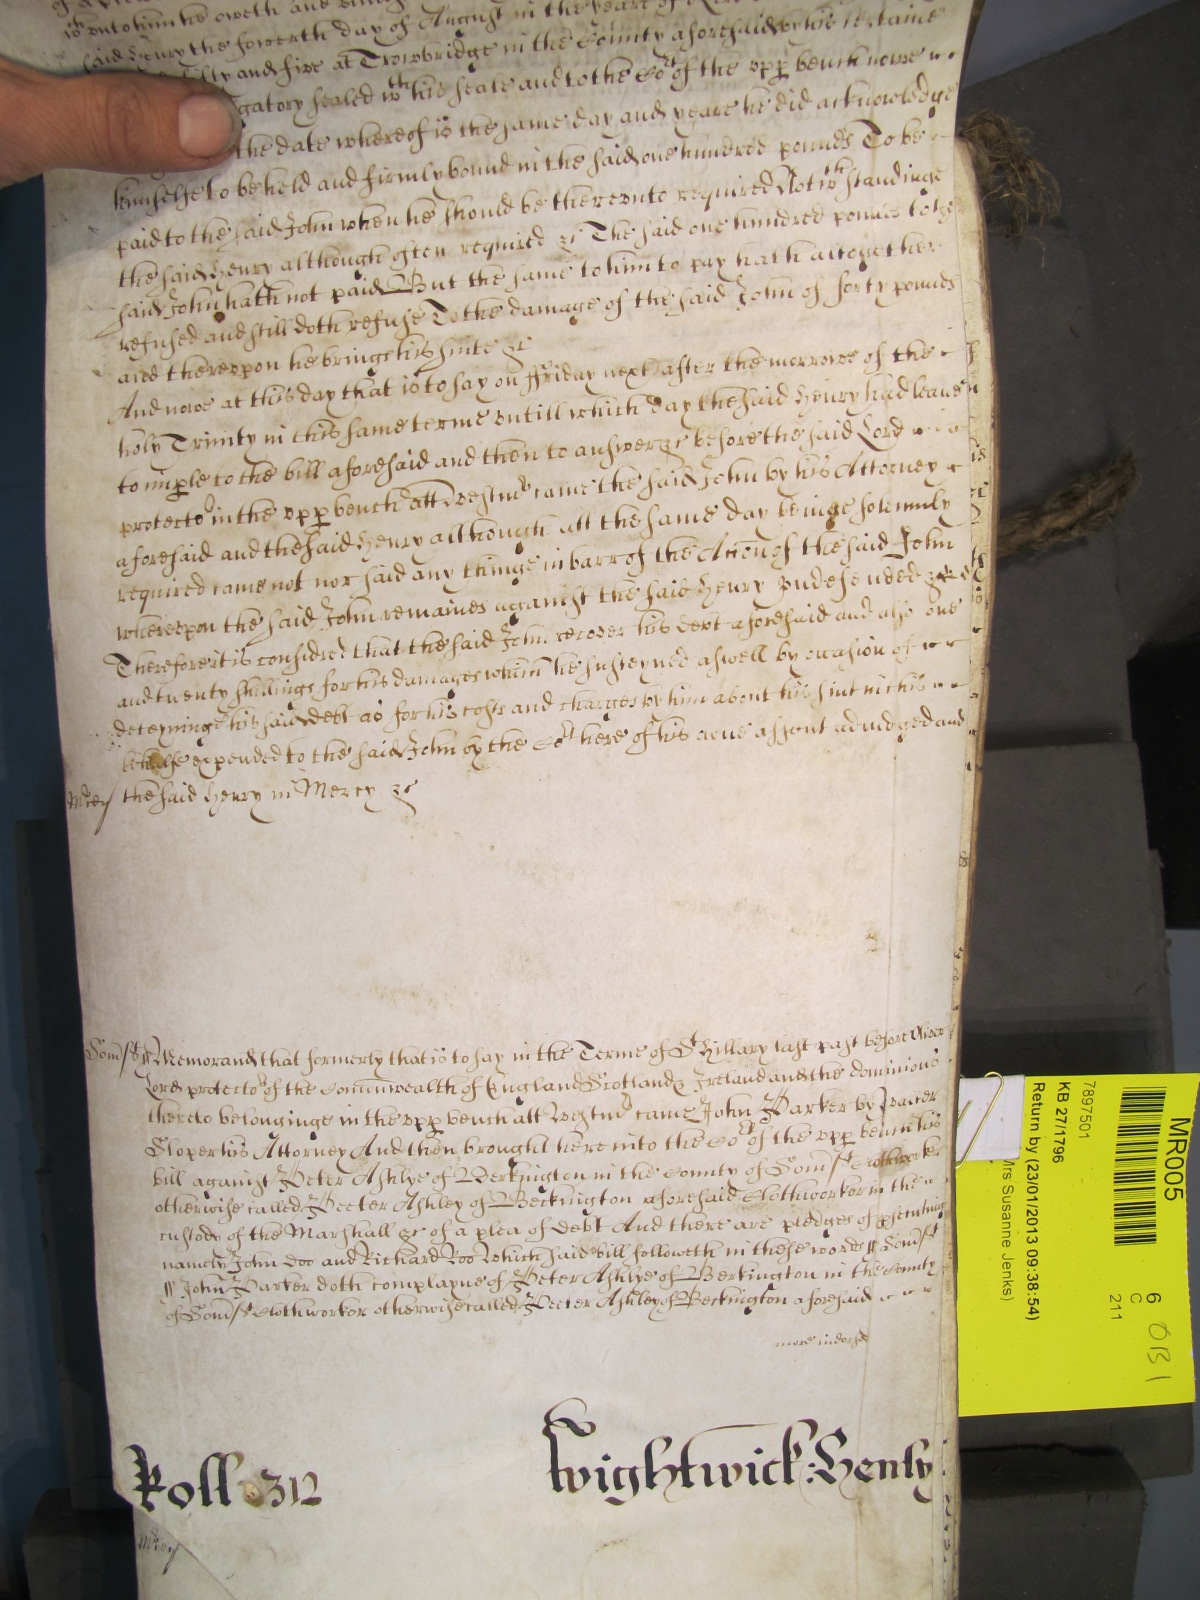 unto him he oweth and
said Henry the fowerth day of August in the yeare of
fifty and five at Trowbridge in the County aforesaid by his certaine
gatory sealed wth his seale and to the Cort of the upp bench nowe
the date whereof is the same day and yeare he did acknowledge
himselfe to be held and firmly bound in the said one hundred pounds To be
paid to the said John when he should be thereunto required Notwthstandinge
the said Henry although often required &c The said one hundred pounds to the
said John hath not paid But the same to him to pay hath altogether
refused and still doth refuse To the damage of the said John of forty pounds
and thereupon he brings his suite &c
And nowe at this day that is to say on ffriday next after the morrowe of the
holy Trinity in this same terme untill which day the said Henry had leave
to imple to the bill aforesaid and then to answer &c before the said Lord
protector in the upp bench att Westmr came the said John by his Attorney
aforesaid and the said Henry although att the same day beinge solemnly
required came not nor said any thinge in barr of the Accon of the said John
whereupon the said John remaines against the said Henry undefended &c
Therefore it is considred that the said John recover his debt aforesaid and also one
and twenty shillings for his damages which he susteyned aswell by occasion of
deteyninge his said debt as for his costs and charges by him about his suit in this
behalfe expended to the said John by the Cort here of his owne assent adiudged and
Mercy the said Henry in Mercy &c
Somst Memorand that formerly that is to say in the Terme of St Hillary last past before Oliver
Lord protector of the Comonwealth of England Scotland & Ireland and the dominions
thereto belonginge in the upp bench att Westmr came John Parker by Walter
Sloper his Attorney And then brought here into the Cort of the upp bench his
bill against Peter Ashlye of Beckington in the County of Somst Clothworker
otherwise called Peeter Ashley of Beckington aforesaid Clothworker in the
custody of the Marshall &c of a plea of debt And there are pledges of psecuting
namely John Doo and Richard Roo Which said bill followeth in these words Somst
John Parker doth complayne of Peter Ashlye of Beckington in the County
of Somst Clothworker otherwise called Peeter Ashley of Beckington aforesaid
more indorsd
Roll 312 Wightwick: Henly
Mercy
MR005
7897501
KB 27/1796
Return by (23/01/2013 09:38:54)
Mrs Susanne Jenks)
6
C
211
OB1